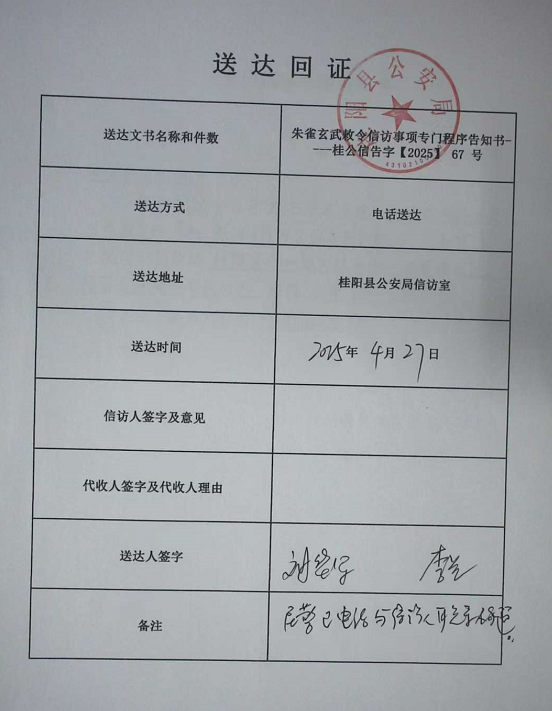 送达回证
阳县公安局
送达文书名称和件数
朱雀玄武敕令信访事项专门程序告知书-
---桂公信告字【2025】 67 号
送达方式
电话送达
送达地址
桂阳县公安局信访室
送达时间
2025年 4月 27日
信访人签字及意见
代收人签字及代收人理由
送达人签字
李兰
备注
民警已电话与信访人联系